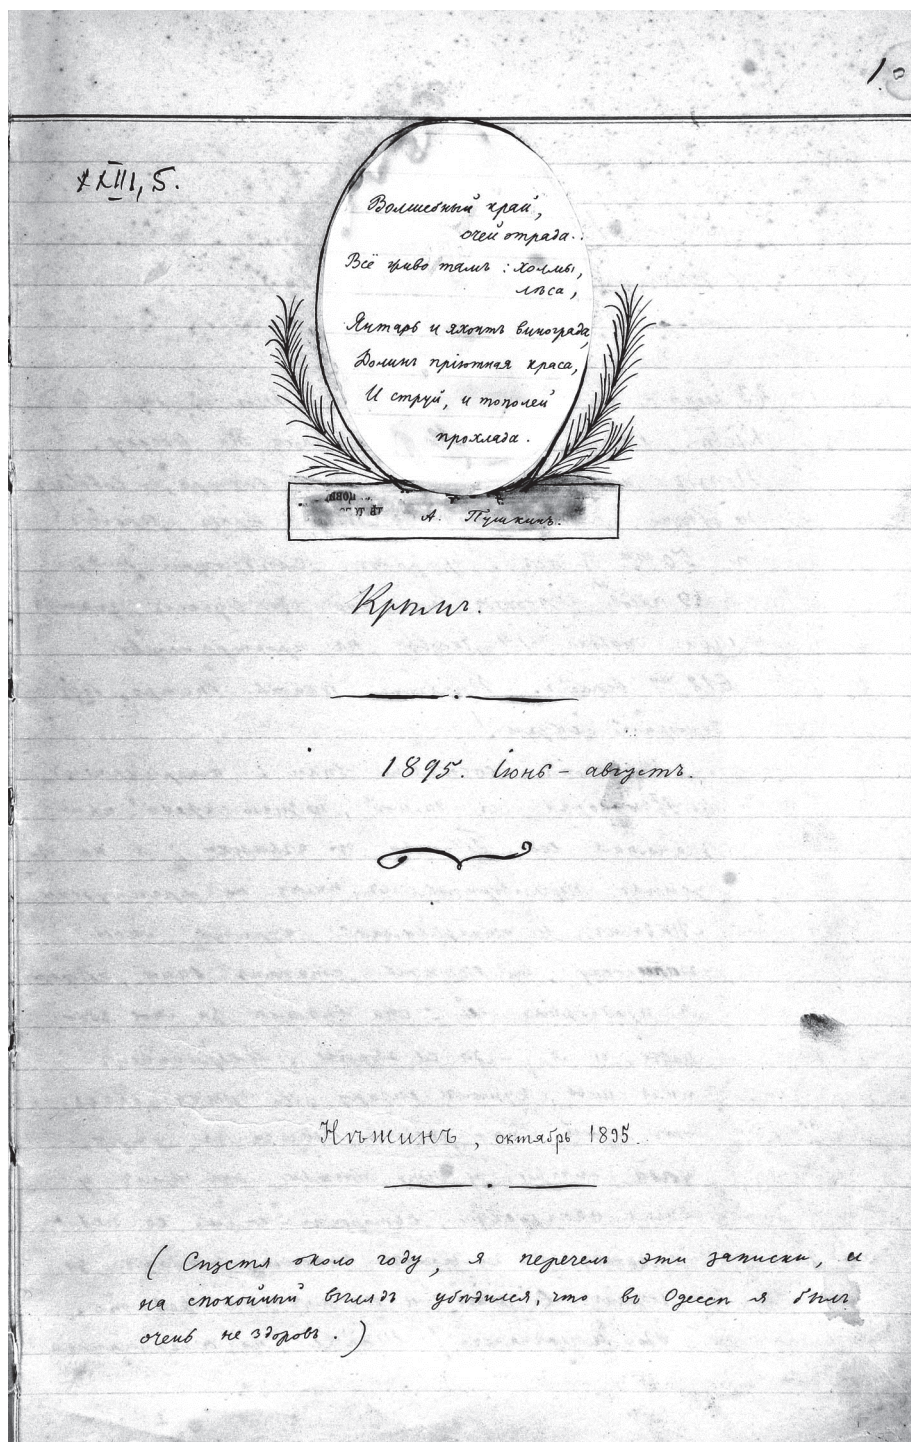 1
XXIII, 5.
Волшебный край,
очей отрада..
Всё живо тамъ: холмы,
лѣса,
Янтарь и яхонтъ винограда,
Долинъ пріютная краса,
И струй, и тополей
прохлада.
А. Пушкинъ.
Крымъ.
1895. Іюнь – августъ.
Нѣжинъ, октябрь 1895.
(Спустя около году, я перечелъ эти записки, и
на спокойный взглядъ убѣдился, что въ Одессѣ я былъ
очень не здоровъ.)